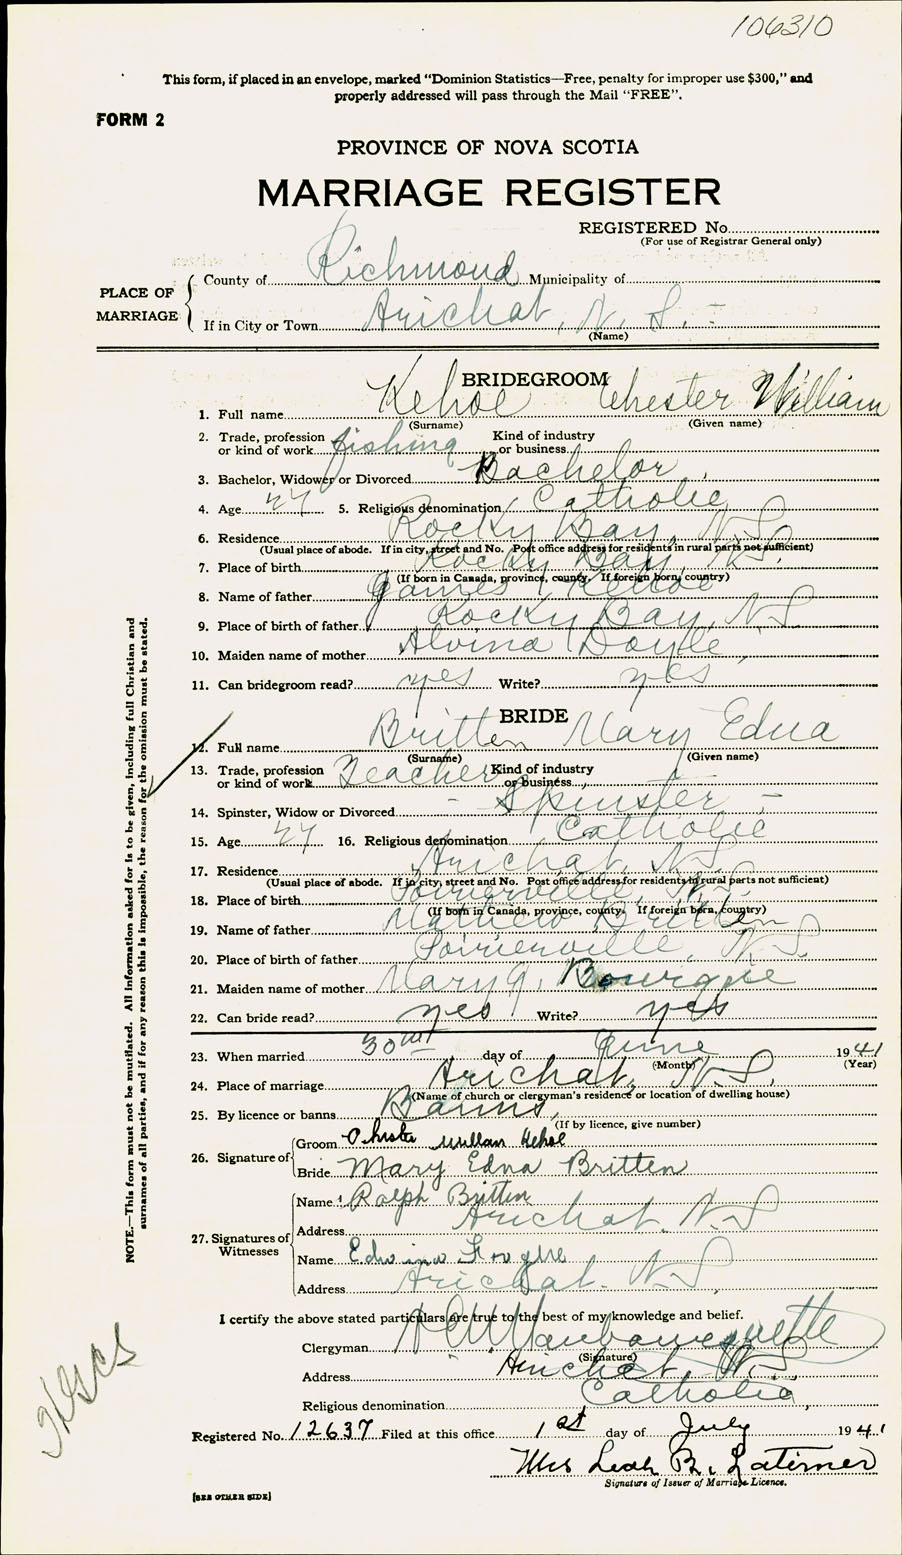 106310
This form, if placed in an envelope, marked “Dominion Statistics—Free, penalty for improper use $300,” and
properly addressed will pass through the Mail “FREE”.
FORM 2
PROVINCE OF NOVA SCOTIA
MARRIAGE REGISTER
REGISTERED No.
(For use of Registrar General only)
PLACE OF MARRIAGE
County of Richmond Municipality of
If in City or Town Arichat, N. S. -
(Name)
BRIDEGROOM
1. Full name Kehoe Chester William
(Surname) (Given name)
2. Trade, profession or kind of work fishing Kind of industry or business
3. Bachelor, Widower or Divorced Bachelor
4. Age 27 5. Religious denomination Catholic
6. Residence Rocky Bay, N.S.
(Usual place of abode. If in city, street and No. Post office address for residents in rural parts not sufficient)
7. Place of birth Rocky Bay, N.S.
(If born in Canada, province, county. If foreign born, country)
8. Name of father James Kehoe
9. Place of birth of father Rocky Bay, N.S
10. Maiden name of mother Alvina Doyle,
11. Can bridegroom read? yes Write? yes
BRIDE
12. Full name Britten Mary Edna
(Surname) (Given name)
13. Trade, profession or kind of work Teacher Kind of industry or business
14. Spinster, Widow or Divorced - Spinster -
15. Age 27 16. Religious denomination Catholic
17. Residence Arichat, N.S.
(Usual place of abode. If in city, street and No. Post office address for residents in rural parts not sufficient)
18. Place of birth Poirierville, N.S.
(If born in Canada, province, county. If foreign born, country)
19. Name of father Mathew Britten
20. Place of birth of father Poirierville, N.S.
21. Maiden name of mother Mary J. Bourque
22. Can bride read? yes Write? yes
23. When married 30th day of June 1941
(Month) (Year)
24. Place of marriage Arichat, N.S.
(Name of church or clergyman's residence or location of dwelling house)
25. By licence or banns Banns,
(If by licence, give number)
26. Signature of Groom William Kehoe
Bride Mary Edna Britten
27. Signatures of Witnesses
Name Ralph Britten
Address Arichat. N.S
Name Edwina
Address Arichat. N.S
I certify the above stated particulars are true to the best of my knowledge and belief.
Clergyman
(Signature)
Address Arichat N.S
Religious denomination Catholic,
Registered No. 12637 Filed at this office 1st day of July 1941
Mrs Leah B. Latimer
Signature of Issuer of Marriage Licence.
[SEE OTHER SIDE]
NOTE.—This form must not be mutilated. All information asked for is to be given, including full Christian and
surnames of all parties, and if for any reason this is impossible, the reason for the omission must be stated.